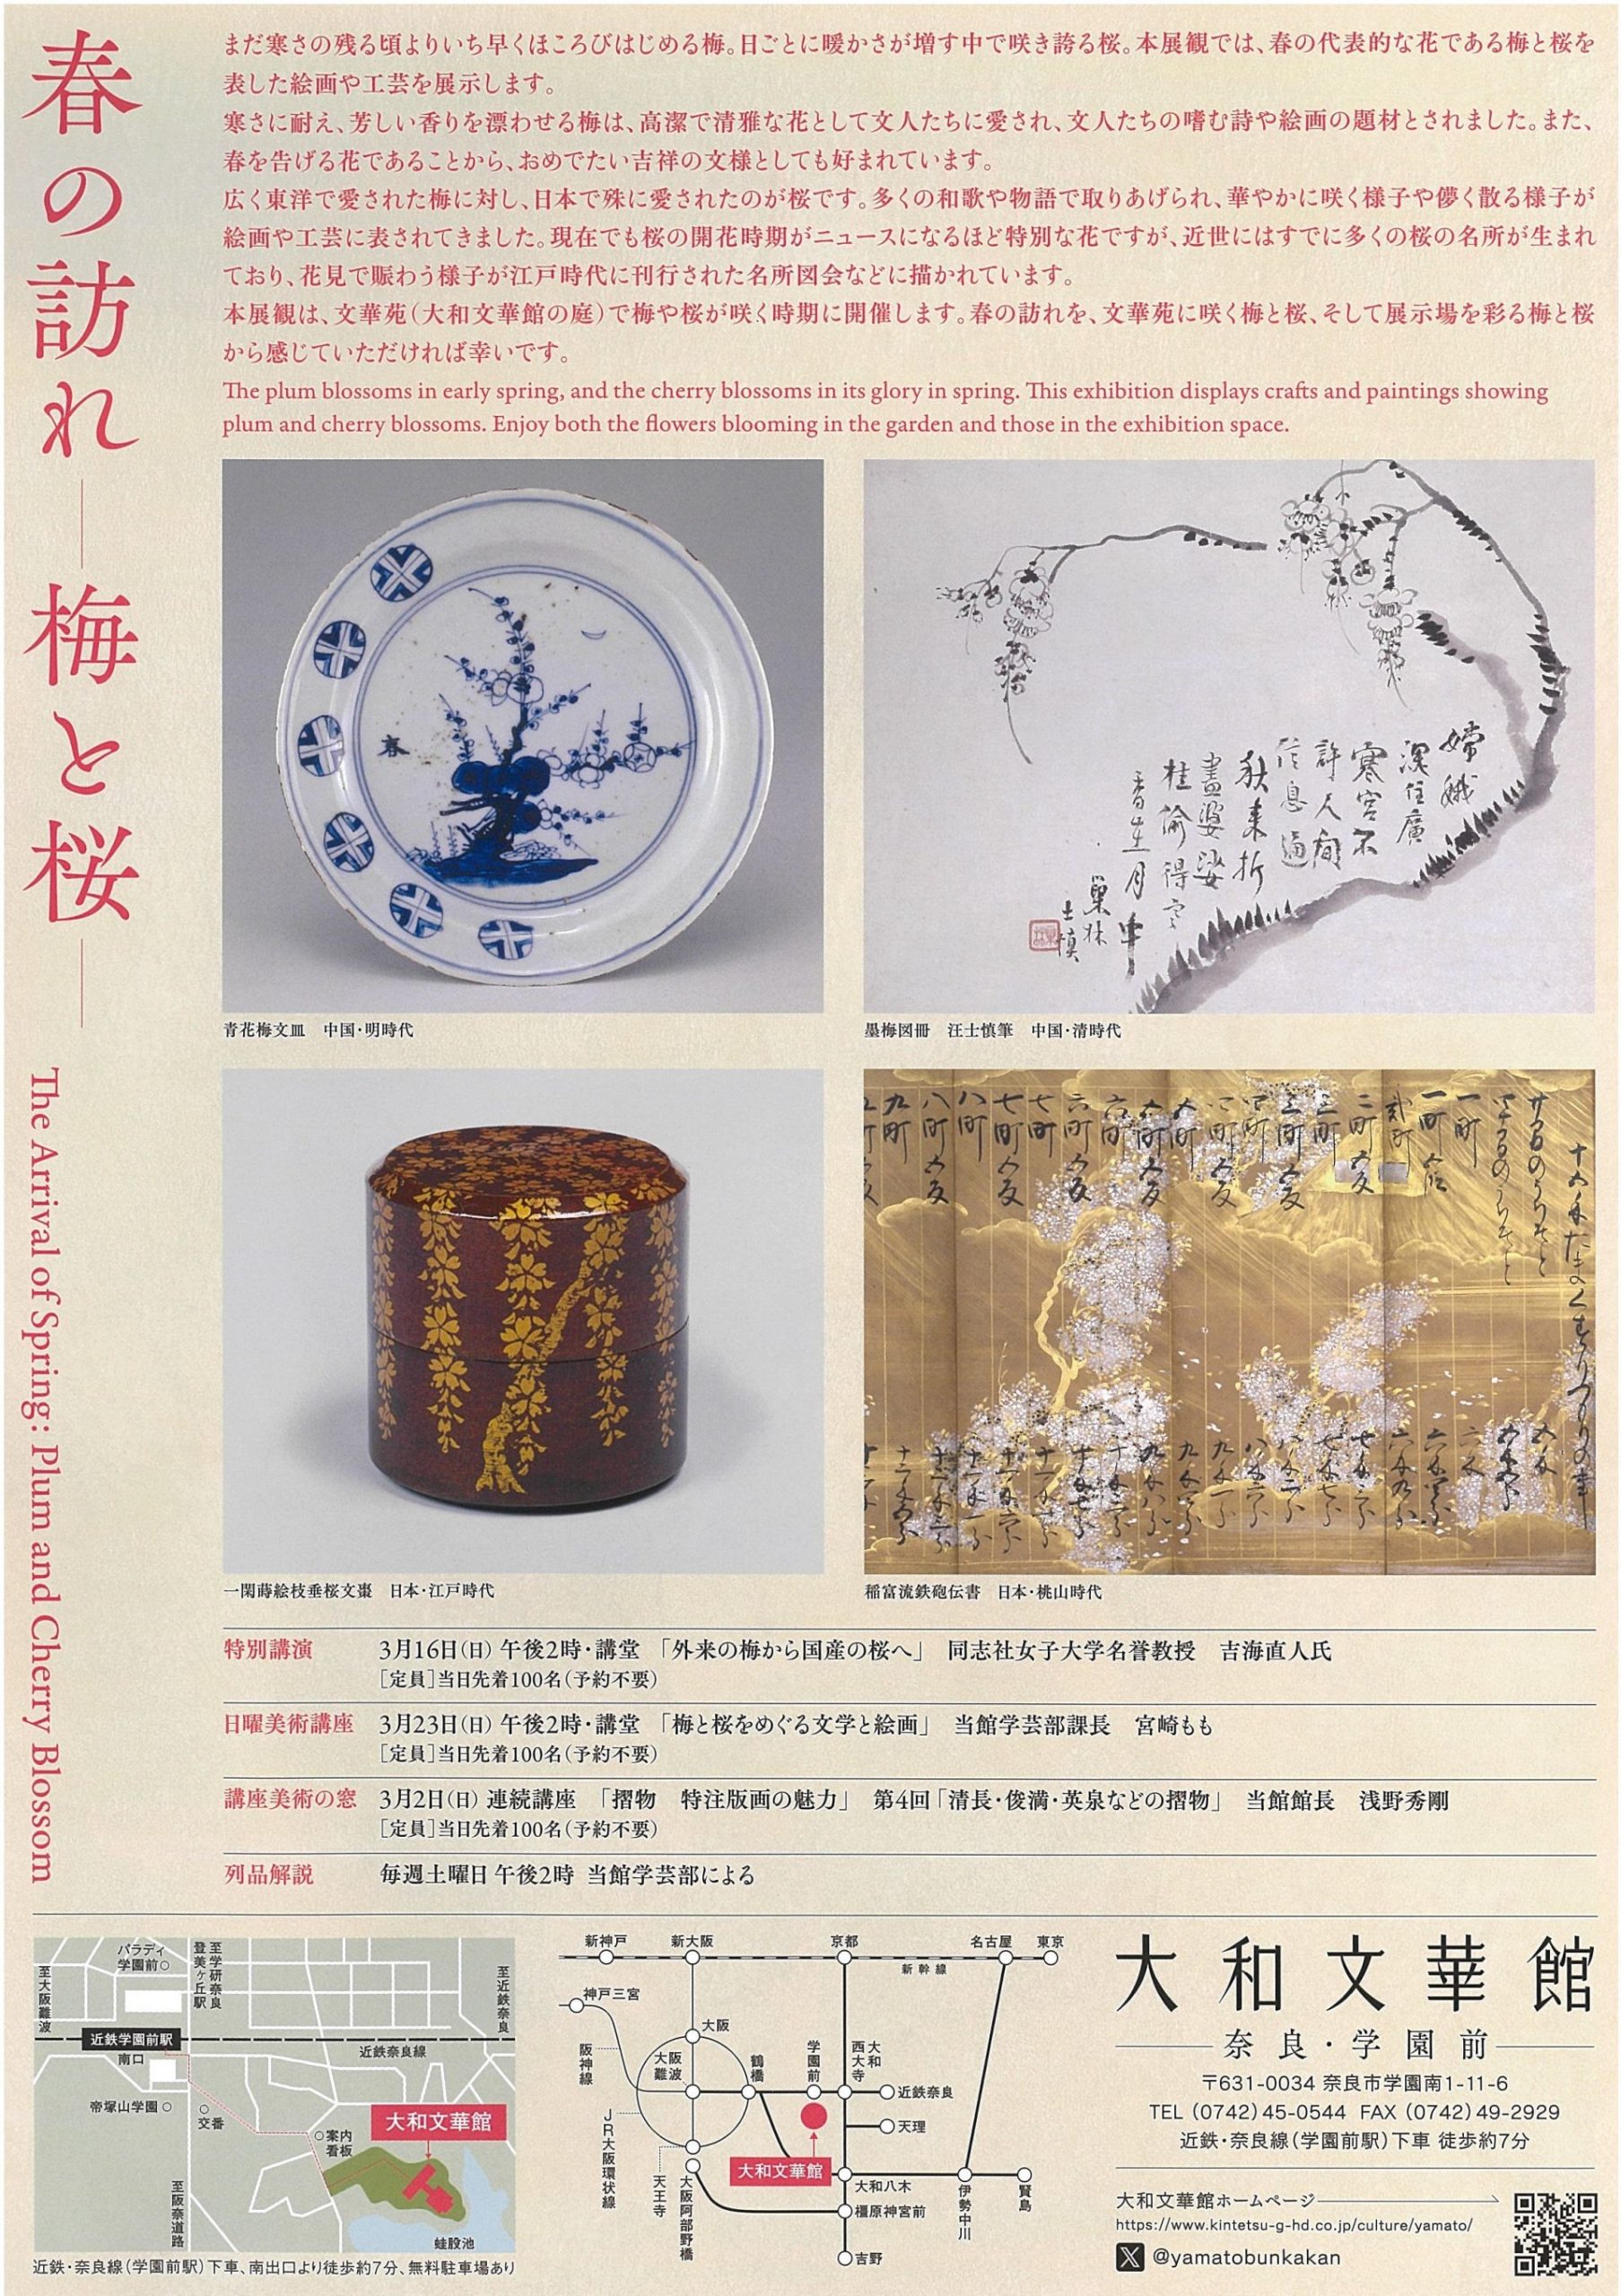 春の訪れ
―梅と桜―
The Arrival of Spring: Plum and Cherry Blossom
まだ寒さの残る頃よりいち早くほころびはじめる梅。日ごとに暖かさが増す中で咲き誇る桜。本展観では、春の代表的な花である梅と桜を
表した絵画や工芸を展示します。
寒さに耐え、芳しい香りを漂わせる梅は、高潔で清雅な花として文人たちに愛され、文人たちの嗜む詩や絵画の題材とされました。また、
春を告げる花であることから、おめでたい吉祥の文様としても好まれています。
広く東洋で愛された梅に対し、日本で殊に愛されたのが桜です。多くの和歌や物語で取りあげられ、華やかに咲く様子や儚く散る様子が
絵画や工芸に表されてきました。現在でも桜の開花時期がニュースになるほど特別な花ですが、近世にはすでに多くの桜の名所が生まれ
ており、花見で賑わう様子が江戸時代に刊行された名所図会などに描かれています。
本展観は、文華苑（大和文華館の庭）で梅や桜が咲く時期に開催します。春の訪れを、文華苑に咲く梅と桜、そして展示場を彩る梅と桜
から感じていただければ幸いです。
The plum blossoms in early spring, and the cherry blossoms in its glory in spring. This exhibition displays crafts and paintings showing
plum and cherry blossoms. Enjoy both the flowers blooming in the garden and those in the exhibition space.
春
青花梅文皿　中国・明時代
嫦娥
深住廣
寒宮不
許人間
信息通
秋来折
盡婆娑
桂偷得
香生月中
巢林
士慎
墨梅図冊　汪士慎筆　中国・清時代
一閑蒔絵枝垂桜文棗　日本・江戸時代
稲富流鉄砲伝書　日本・桃山時代
特別講演　3月16日（日） 午後2時・講堂　「外来の梅から国産の桜へ」　同志社女子大学名誉教授　吉海直人氏
［定員］当日先着100名（予約不要）
日曜美術講座　3月23日（日） 午後2時・講堂　「梅と桜をめぐる文学と絵画」　当館学芸部課長　宮崎もも
［定員］当日先着100名（予約不要）
講座美術の窓　3月2日（日） 連続講座　「摺物　特注版画の魅力」　第4回「清長・俊満・英泉などの摺物」　当館館長　浅野秀剛
［定員］当日先着100名（予約不要）
列品解説　毎週土曜日 午後2時 当館学芸部による
至大阪難波
パラディ
学園前
至学研奈良
登美ヶ丘駅
至近鉄奈良
近鉄学園前駅
南口
近鉄奈良線
帝塚山学園
交番
案内
看板
大和文華館
至阪奈道路
蛙股池
近鉄・奈良線（学園前駅）下車、南出口より徒歩約7分、無料駐車場あり
新神戸
新大阪
京都
名古屋
東京
新幹線
神戸三宮
大阪
阪神線
大阪
難波
鶴橋
学園前
大和
西大寺
近鉄奈良
天理
JR大阪環状線
天王寺
大阪阿部野橋
大和文華館
大和八木
橿原神宮前
吉野
伊勢中川
賢島
大和文華館
奈良・学園前
〒631-0034 奈良市学園南1-11-6
TEL (0742)45-0544 FAX (0742)49-2929
近鉄・奈良線（学園前駅）下車 徒歩約7分
大和文華館ホームページ
https://www.kintetsu-g-hd.co.jp/culture/yamato/
@yamatobunkakan